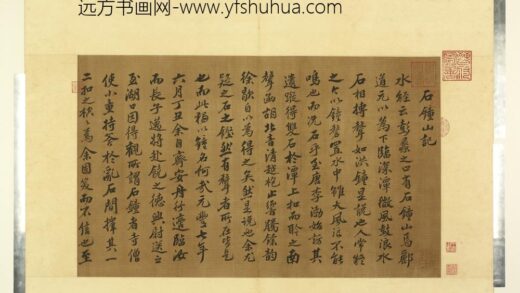 远方书画网-www.yfshuhua.com
石钟山記
水經云彭蠡之口有石鍾山焉酈
道元以為下臨深潭微風鼓浪水
石相搏聲如洪鍾是說也人常疑
之今以鍾磬置水中雖大風浪不能
鳴也而況石乎至唐李渤始訪其
遺蹤得雙石於潭上扣而聆之南
聲函胡北音清越枹止響騰餘韵
徐歇自以為得之矣然是說也余尤
疑之石之鏗然有聲者所在皆是
也而此獨以鍾名何哉元豐七年
六月丁丑余自齊安舟行適臨汝
而長子邁將赴饒之德興尉送之
至湖口因得觀所謂石鍾者寺僧
使小童持斧於亂石間擇其一
二扣之硿硿焉余固笑而不信也至